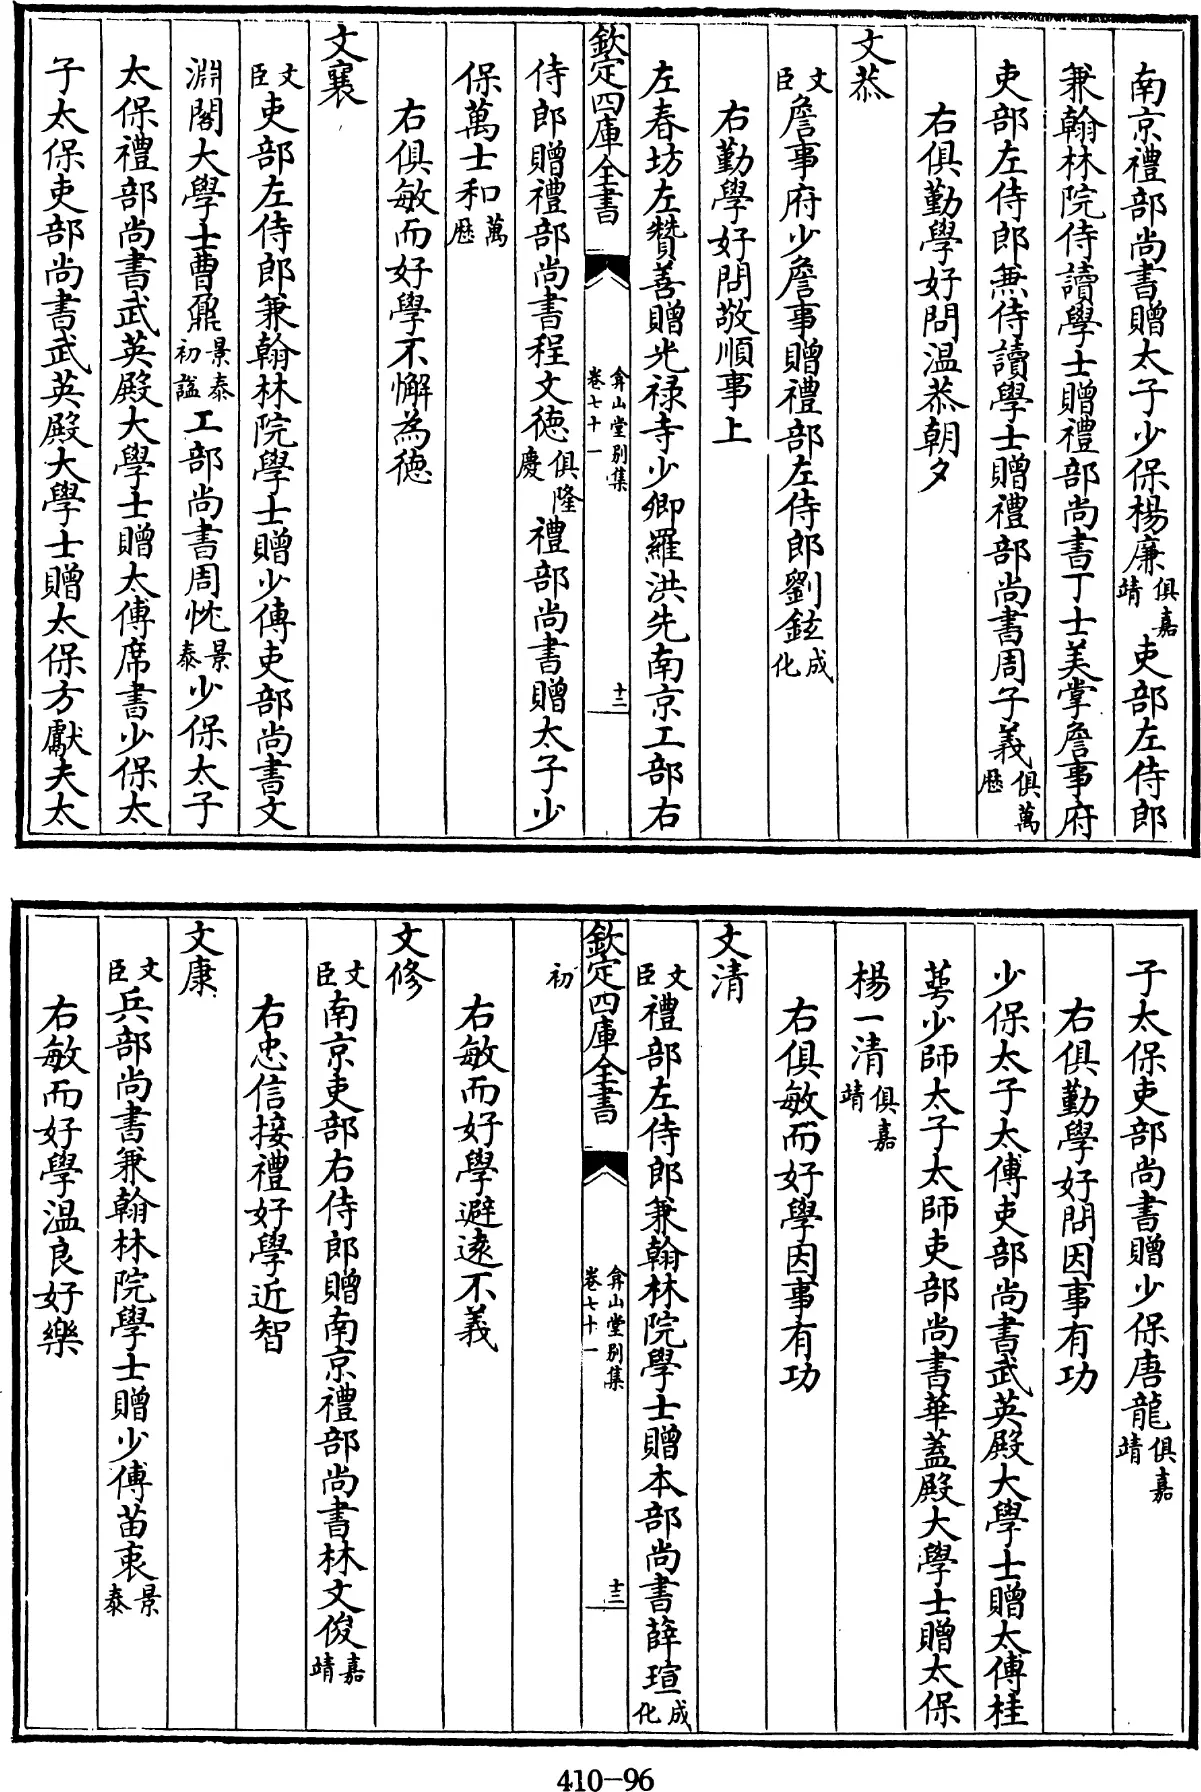 南京禮部尚書贈太子少保楊廉俱嘉靖吏部左侍郎
兼翰林院侍讀學士贈禮部尚書丁士美掌詹事府
吏部左侍郎兼侍讀學士贈禮部尚書周子義俱萬厯
右俱勤學好問温恭朝夕
文恭
文臣詹事府少詹事贈禮部左侍郎劉鉉成化
右勤學好問敬順事上
左春坊左贊善贈光禄寺少卿羅洪先南京工部右
欽定四庫全書
弇山堂别集
卷七十一
十三
侍郎贈禮部尚書程文德俱隆慶禮部尚書贈太子少
保萬士和萬厯
右俱敏而好學不懈為德
文襄
文臣吏部左侍郎兼翰林院學士贈少傅吏部尚書文
淵閣大學士曹鼐景泰初諡工部尚書周忱景泰少保太子
太保禮部尚書武英殿大學士贈太傅席書少保太
子太保吏部尚書武英殿大學士贈太保方獻夫太
子太保吏部尚書贈少保唐龍俱嘉靖
右俱勤學好問因事有功
少保太子太傅吏部尚書武英殿大學士贈太傅桂
萼少師太子太師吏部尚書華蓋殿大學士贈太保
楊一清俱嘉靖
右俱敏而好學因事有功
文清
文臣禮部左侍郎兼翰林院學士贈本部尚書薛瑄成化
欽定四庫全書
弇山堂别集
卷七十一
十三
初
右敏而好學避逺不義
文修
文臣南京吏部右侍郎贈南京禮部尚書林文俊嘉靖
右忠信接禮好學近智
文康
文臣兵部尚書兼翰林院學士贈少傅苗衷景泰
右敏而好學温良好樂
410-96